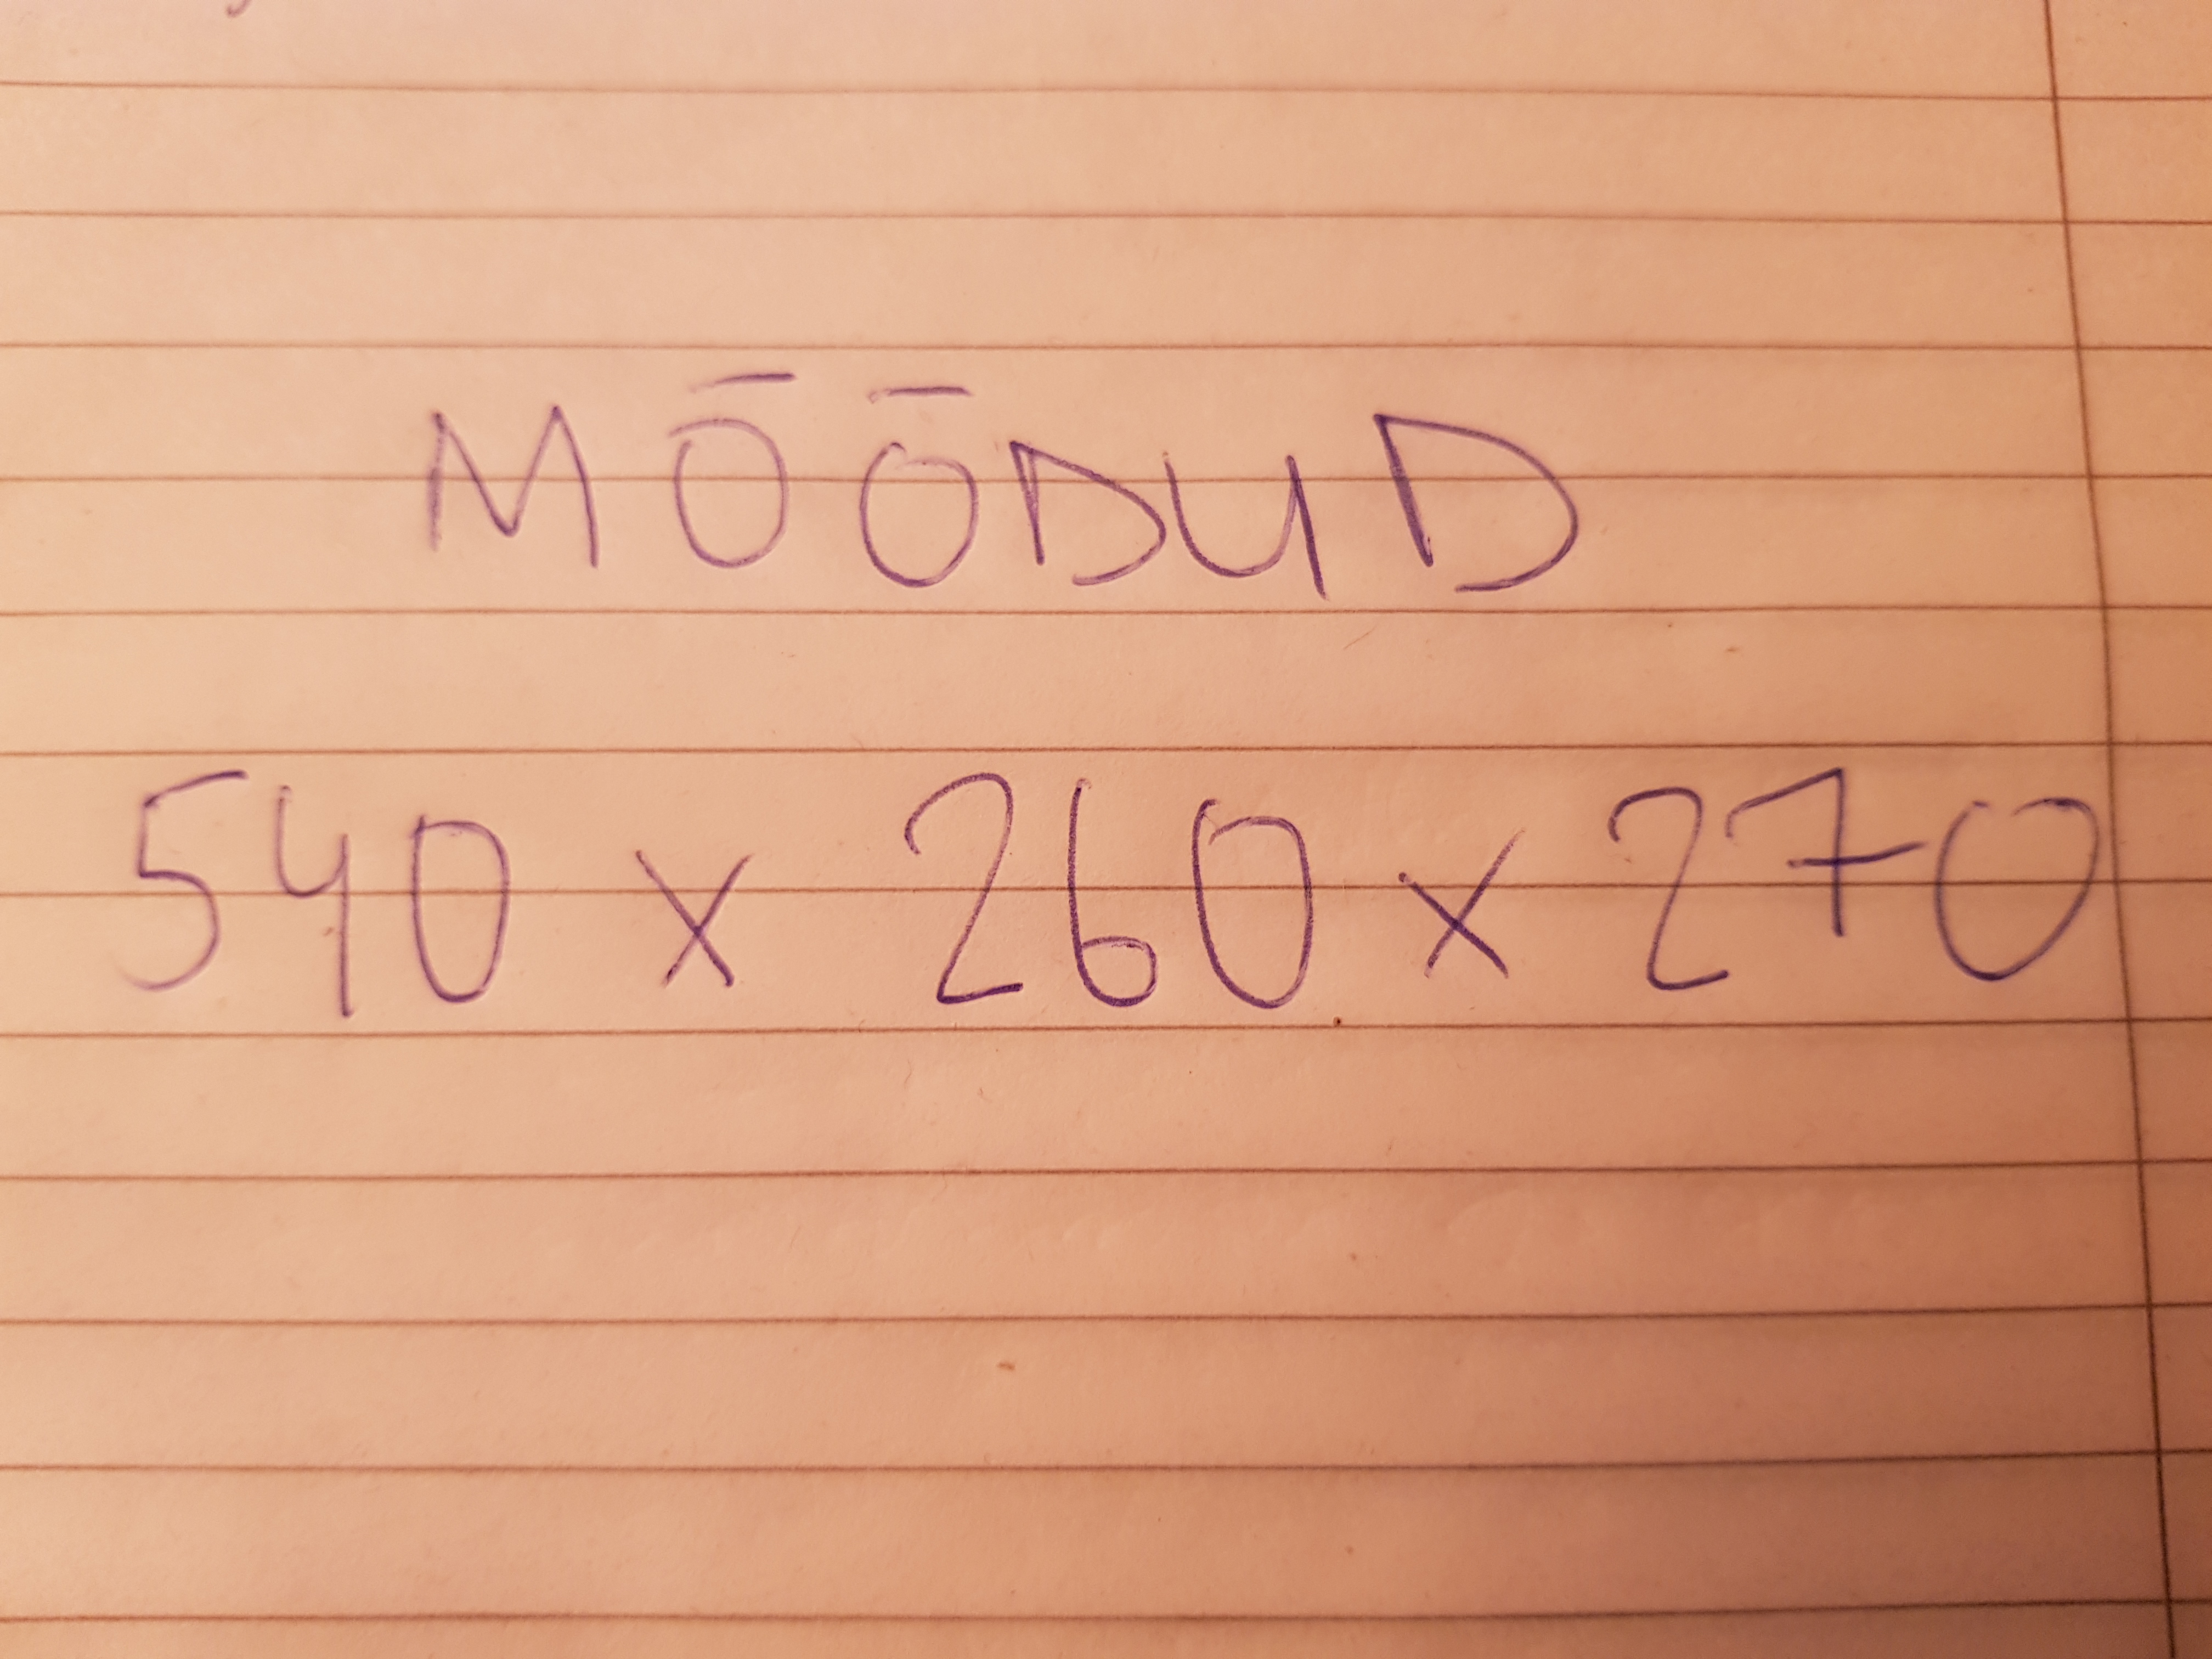 MÕÕDUD
540 x 260 x 270